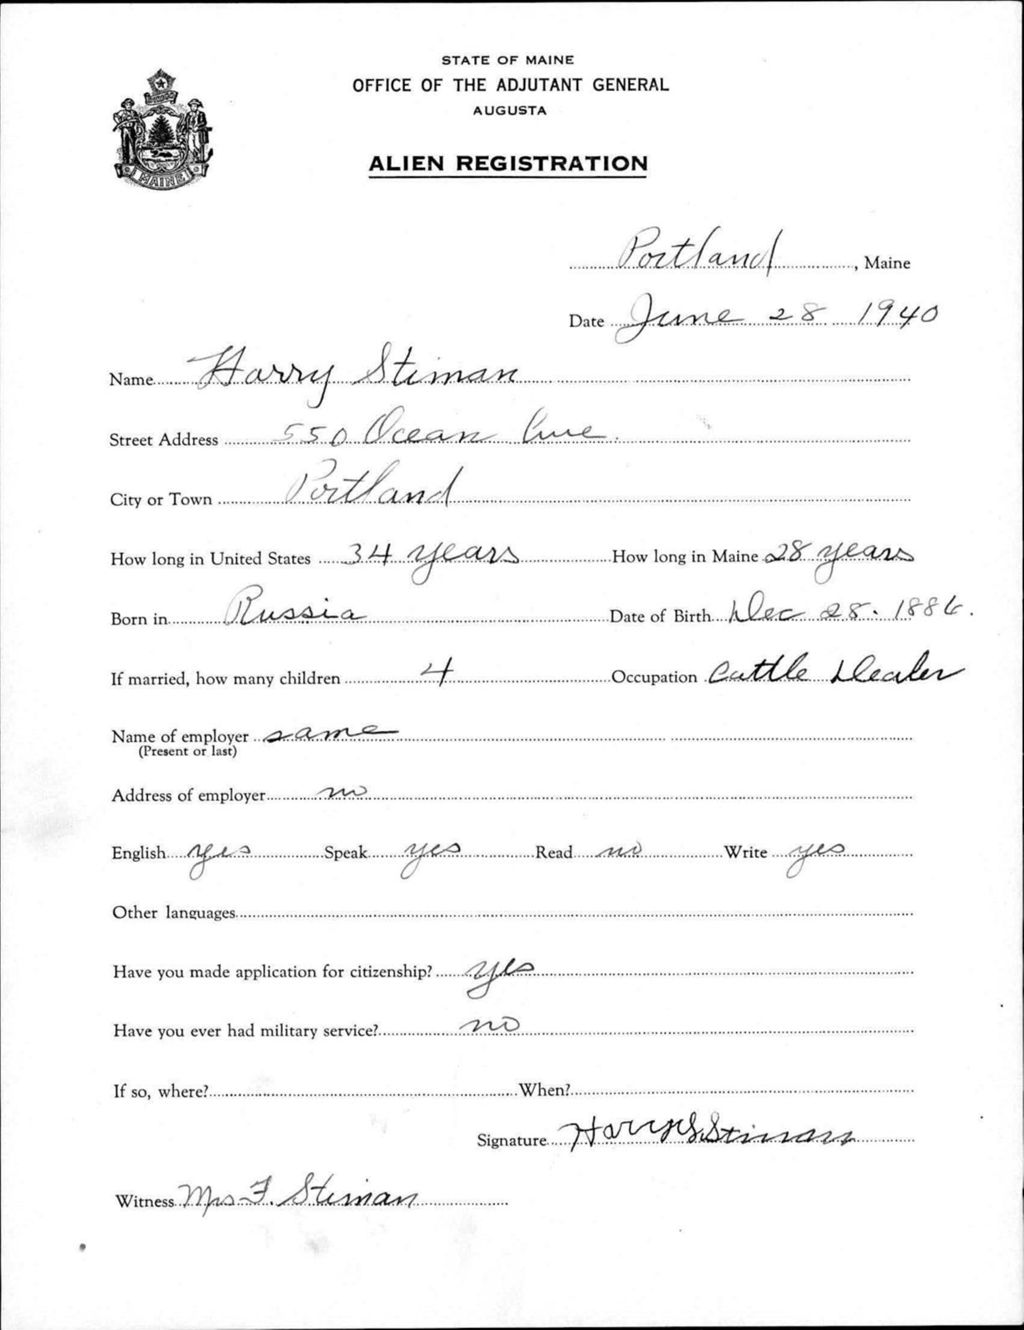 STATE OF MAINE
OFFICE OF THE ADJUTANT GENERAL
AUGUSTA
ALIEN REGISTRATION
MAINE
Portland, Maine
Date June 28 1940
Name Harry Stiman
Street Address 550 Ocean Ave.
City or Town Portland
How long in United States 34 years How long in Maine 28 years
Born in Russia Date of Birth Dec 28. 1886.
If married, how many children 4 Occupation Cattle Dealer
Name of employer same
(Present or last)
Address of employer no
English yes Speak yes Read no Write yes
Other languages
Have you made application for citizenship? yes
Have you ever had military service? no
If so, where? When?
Signature Harry S. Stiman
Witness Mrs F. Stiman